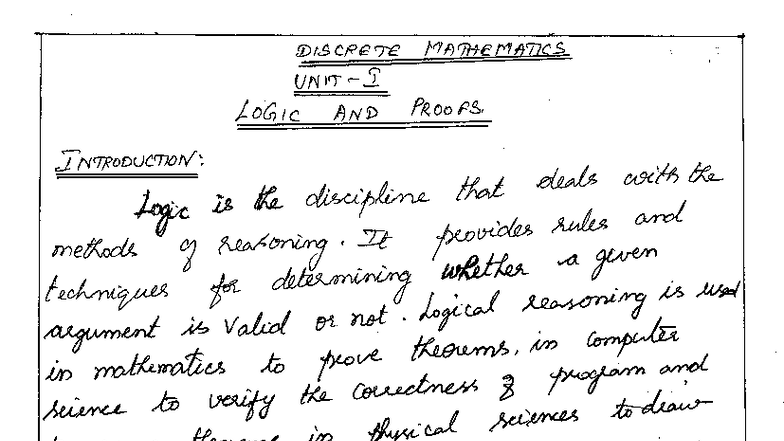 DISCRETE MATHEMATICS
UNIT-I
LOGIC AND PROOFS
INTRODUCTION:
Logic is the discipline that deals with the
methods of reasoning. It provides rules and
techniques for determining whether a given
argument is valid or not. Logical reasoning is used
in mathematics to prove theorems, in computer
science to verify the correctness of program and
theorems in physical sciences to draw